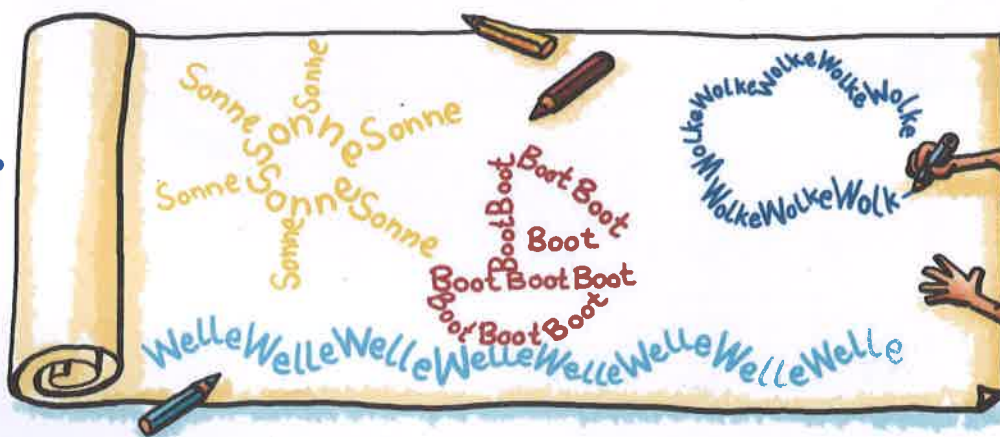 Sonne
Sonne
Sonne
Sonne
Sonne
Sonne
Sonne
Sonne
BootBoot
Boot Boot
Boot
Boot Boot Boot
Boot Boot Boot
WolkeWolkeWolkeWolkeWolke
WolkeWolkeWolk
WelleWelleWelleWelleWelleWelleWelleWelle